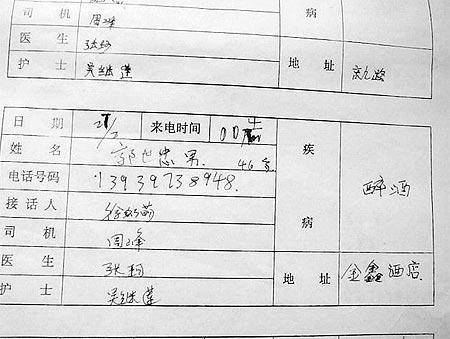 司 机 周 病
医 生 张
护 士 吴继莲 地 址
日 期 21/2 来电时间
姓 名 郭世忠 男 46岁 疾
电话号码 13939738948 醉酒
接 话 人 徐 萌 病
司 机 周
医 生 张 地 址 金鑫酒店
护 士 吴继莲